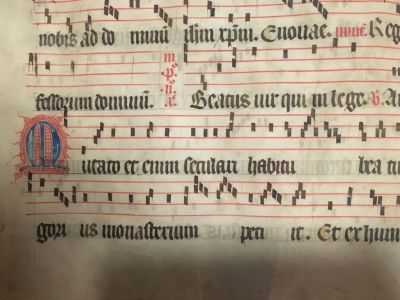 nobis ad do minū ihm xpm. Euouae. Reg
festorum dominū. Beatus uir qui in lege. R. A
Mutato et enim seculari habitu bra ti
gori us monasterium peti it. Et ex hum